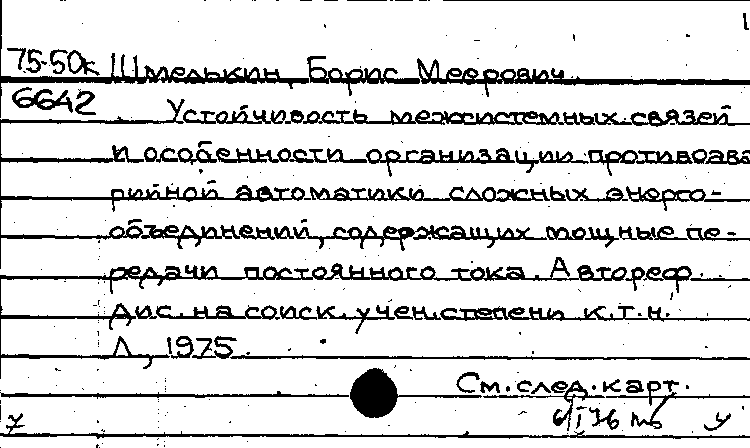 75-50к Шмелькин, Борис Меерович.
6642 Устойчивость межсистемных связей
и особенности организации противоава
рийной автоматики сложных энерго-
объединений, содержащих мощные пе-
редачи постоянного тока. Автореф.
дис. на соиск. учен. степени к.т.н.
Л., 1975.
См. след. карт.